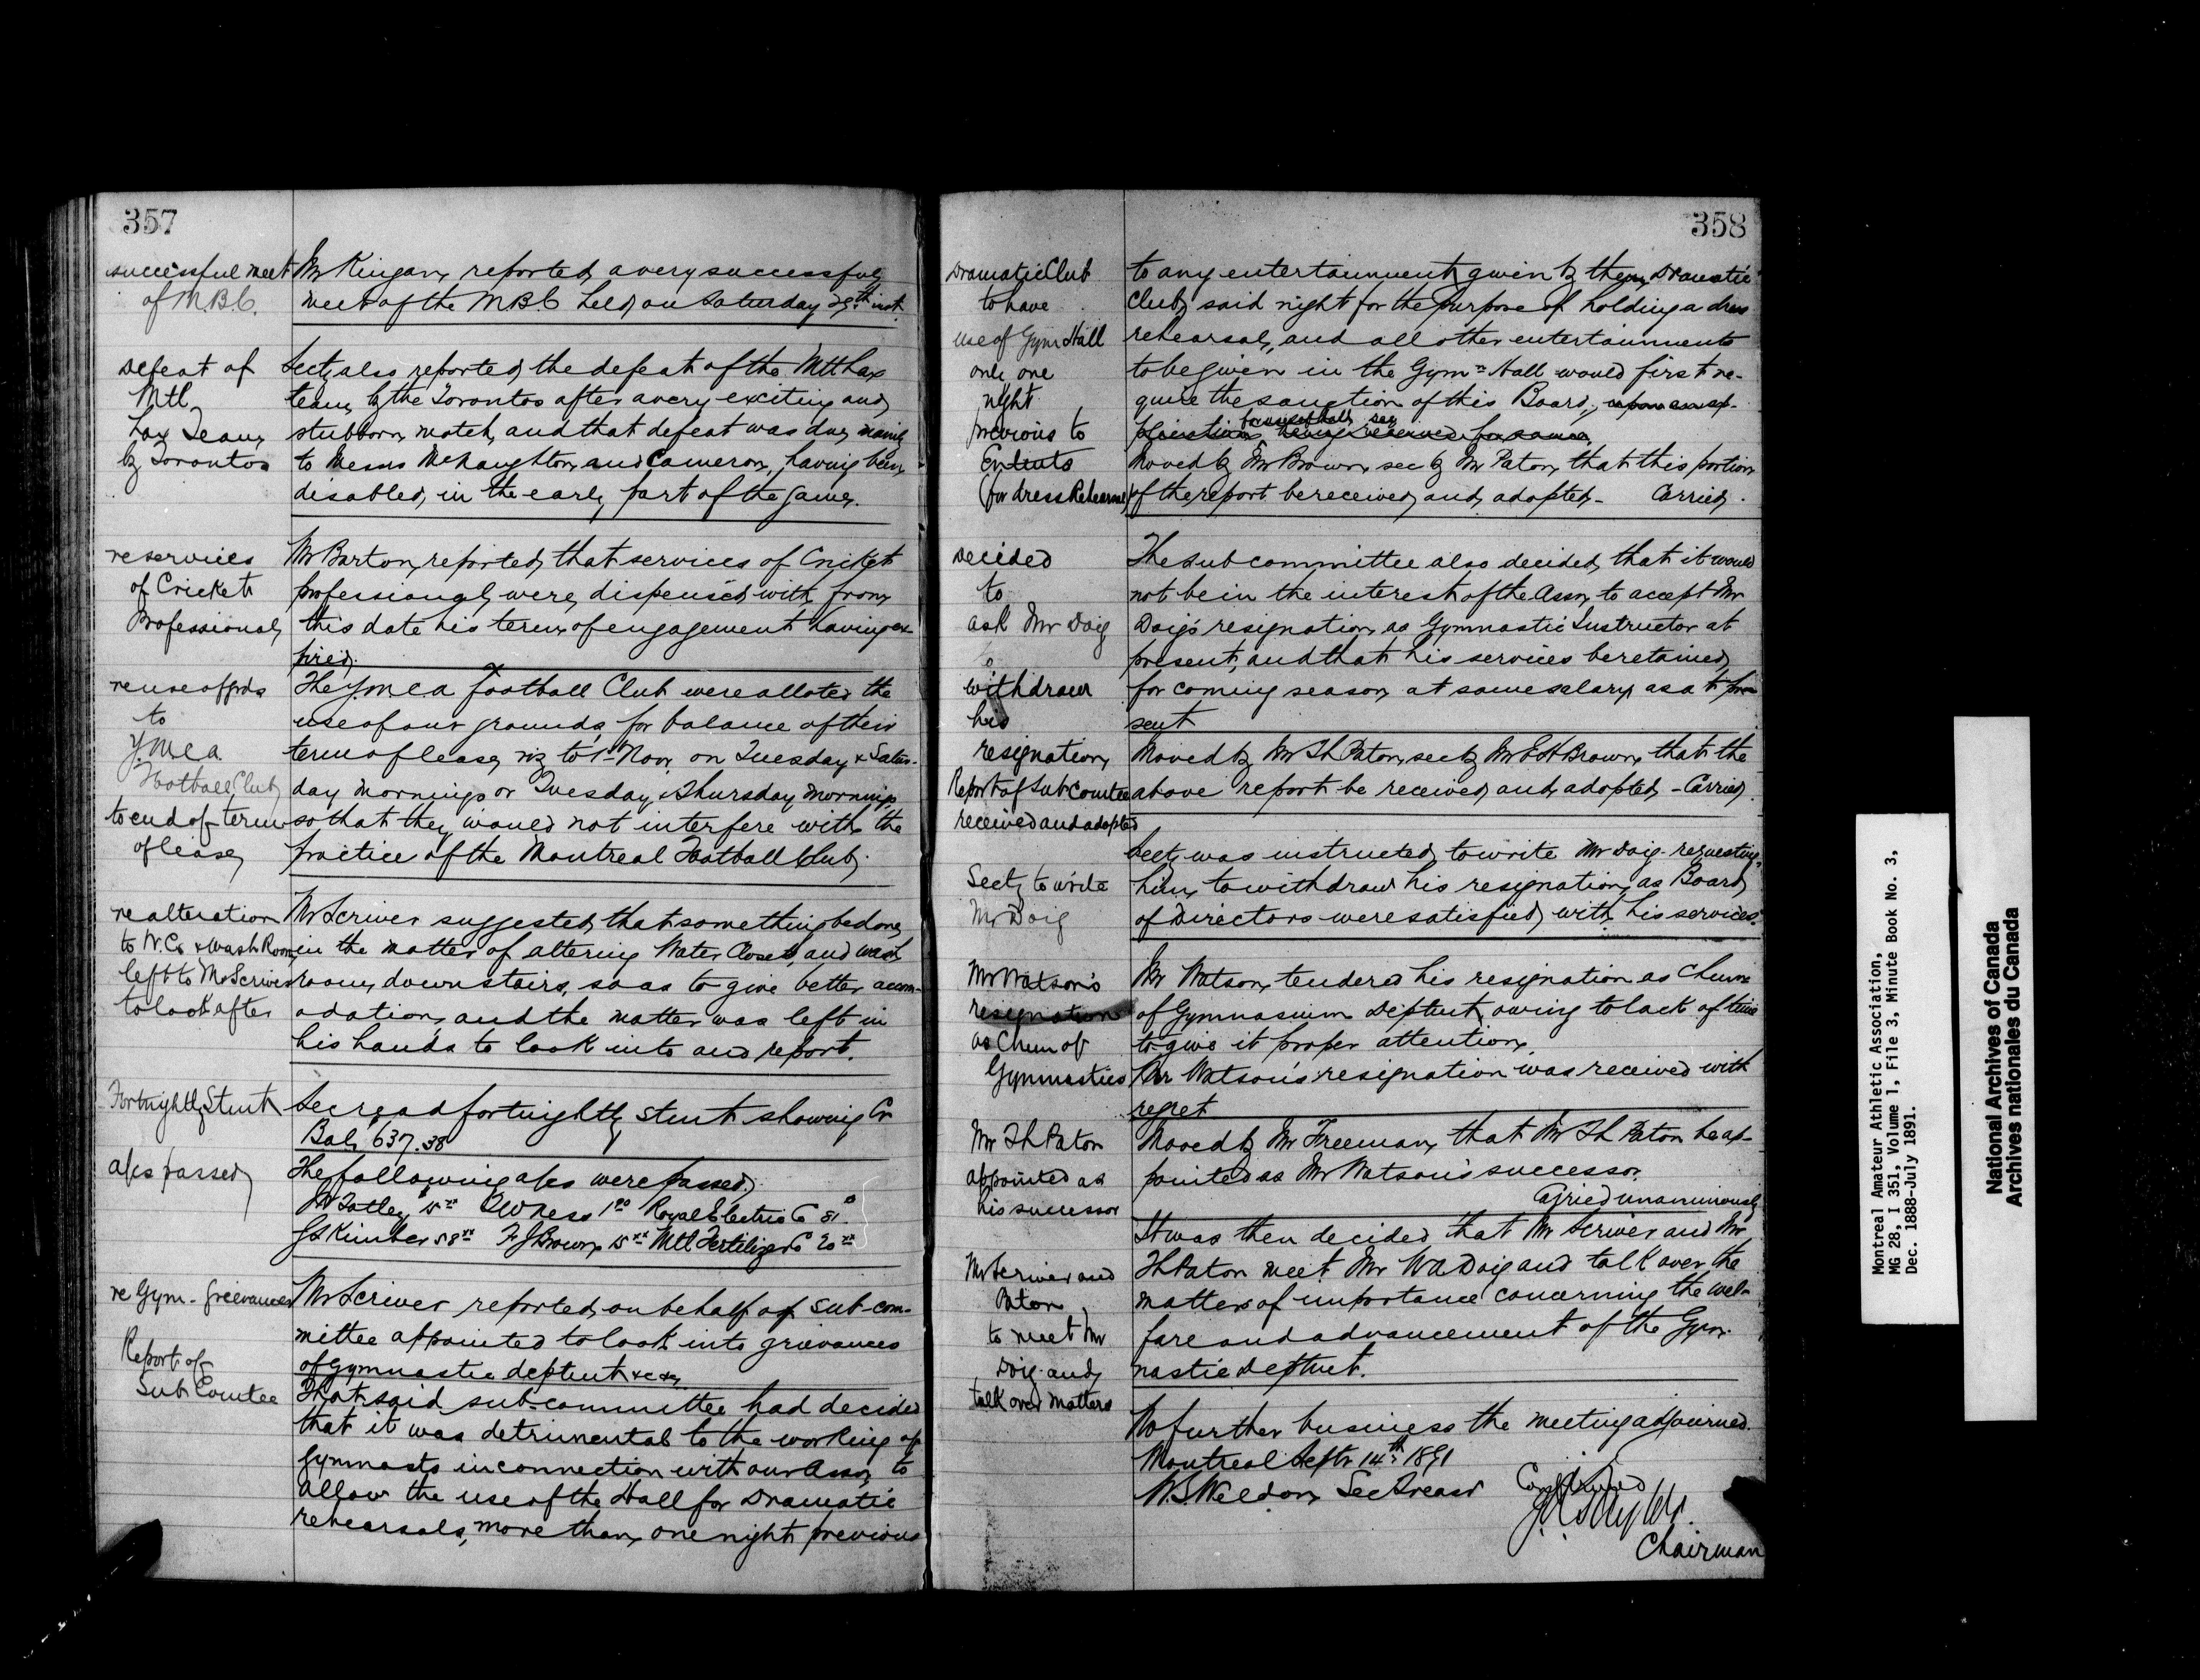 357
successful meet
of M.B.C.
Mr Kingan reported a very successful
meet of the M.B.C held on Saturday 29th inst.
Defeat of
Mtl
Lax Team
by Torontos
Secty also reported the defeat of the Mtl Lax
team by the Torontos after a very exciting and
stubborn match, and that defeat was due mainly
to Messrs McNaughton and Cameron, having been
disabled, in the early part of the game.
re services
of Cricket
Professional
Mr Barton reported that services of Cricket
professional, were dispensed with from
this date his term of engagement having ex-
pired.
re use of grds
to
Y.M.C.A.
Football Club
to end of term
of lease
The Y.M.C.A Football Club were alloted the
use of our grounds, for balance of their
term of lease, viz to 1st Nov, on Tuesday & Satur-
day mornings or Tuesday & Thursday mornings
so that they would not interfere with the
practice of the Montreal Football Club.
re alteration
to W.C. & Wash Room
left to Mr Scriver
to look after
Mr Scriver suggested, that something be done
in the matter of altering Water Closet, and wash
room, down stairs, so as to give better accom-
odation, and the matter was left in
his hands to look into and report.
Fortnightly Stmt
Sec read fortnightly stmt showing Cr
Bal, 637.38
a/cs passed
The following a/cs were passed,
Royal Electric Co 81.
JS Kimber 58 F J Brown 15 Mtl Fertilizer Co 20
re Gym. Grievances
Report of
Sub Comtee
Mr Scriver reported, on behalf of sub-com-
mittee appointed to look into grievances
of gymnastic deptmt &c &c
That said sub-committee had decided
that it was detrimental to the working of
gymnasts in connection with our Assn, to
allow the use of the Hall for Dramatic
rehearsals, more than one night previous
358
Dramatic Club
to have
use of Gym Hall
only one
night
previous to
Entmts
for dress Rehearsal
to any entertainment given by them, Dramatic
Club, said night for the purpose of holding a dress
rehearsal, and all other entertainments
to be given in the Gym Hall would first re-
quire the sanction of this Board,
Moved by Mr Brown, sec by Mr Paton, that this portion
of the report be received, and adopted – Carried.
Decided
to
ask Mr Doig
to
withdraw
his
resignation
The sub committee also decided, that it would
not be in the interest of the Assn, to accept Mr
Doig's resignation, as Gymnastic Instructor at
present, and that his services be retained,
for coming season, at same salary, as at pre-
sent
Report of Sub Comtee
received and adopted
Moved by Mr Th Paton, sec by Mr E H Brown, that the
above report be received, and adopted, – Carried.
Secty to write
Mr Doig
Secty was instructed, to write Mr Doig requesting
him, to withdraw his resignation, as Board
of Directors were satisfied, with his services.
Mr Watson's
resignation
as Chmn of
Gymnastics
Mr Watson, tendered his resignation as Chmn
of Gymnasium Deptmt, owing to lack of time
to give it proper attention.
Mr Watson's resignation was received with
regret
Mr Th Paton
appointed as
his successor
Moved by Mr Freeman, that Mr Th Paton be ap-
pointed as Mr Watson's successor.
Carried unanimously
Mr Scriver and
Paton
to meet Mr
Doig and
talk over matters
It was then decided that Mr Scriver and Mr
Th Paton meet Mr W A Doig and talk over the
matters of importance concerning the wel-
fare and advancement of the Gym-
nastic Deptmt.
No further business the meeting adjourned.
Montreal Septr 14th 1891
W.S. Weldon, Sec Treasr
Confirmed
Chairman
Montreal Amateur Athletic Association,
MG 28, I 351, Volume 1, File 3, Minute Book No. 3,
Dec. 1888-July 1891.
National Archives of Canada
Archives nationales du Canada